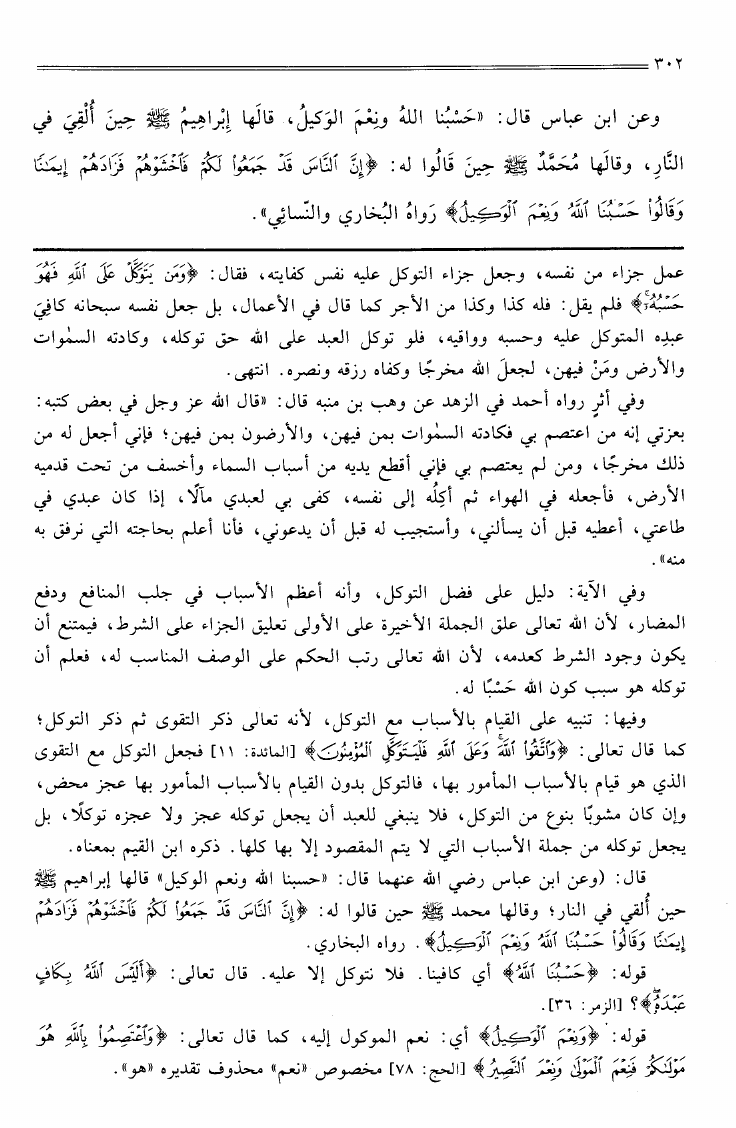 ٣٠٢
وعن ابن عباس قال: «حَسْبُنا اللهُ ونِعْمَ الوَكيلُ، قالَها إِبْراهِيمُ ﷺ حِينَ أُلْقِيَ في
النَّارِ، وقالَها مُحَمَّدٌ ﷺ حِينَ قَالُوا له: ﴿إِنَّ ٱلنَّاسَ قَدْ جَمَعُوا۟ لَكُمْ فَٱخْشَوْهُمْ فَزَادَهُمْ إِيمَـٰنًا
وَقَالُوا۟ حَسْبُنَا ٱللَّهُ وَنِعْمَ ٱلْوَكِيلُ﴾ رَواهُ البُخاري والنّسائي».
عمل جزاء من نفسه، وجعل جزاء التوكل عليه نفس كفايته، فقال: ﴿وَمَن يَتَوَكَّلْ عَلَى ٱللَّهِ فَهُوَ
حَسْبُهُۥٓ﴾ فلم يقل: فله كذا وكذا من الأجر كما قال في الأعمال، بل جعل نفسه سبحانه كافِيَ
عبدِه المتوكل عليه وحسبه وواقيه، فلو توكل العبد على الله حق توكله، وكادته السمٰوات
والأرض ومَنْ فيهن، لجعلَ الله مخرجًا وكفاه رزقه ونصره. انتهى.
وفي أثرٍ رواه أحمد في الزهد عن وهب بن منبه قال: «قال الله عز وجل في بعض كتبه:
بعزتي إنه من اعتصم بي فكادته السمٰوات بمن فيهن، والأرضون بمن فيهن؛ فإني أجعل له من
ذلك مخرجًا، ومن لم يعتصم بي فإني أقطع يديه من أسباب السماء وأخسف من تحت قدميه
الأرض، فأجعله في الهواء ثم أكِلُه إلى نفسه، كفى بي لعبدي مآلًا، إذا كان عبدي في
طاعتي، أعطيه قبل أن يسألني، وأستجيب له قبل أن يدعوني، فأنا أعلم بحاجته التي نرفق به
منه».
وفي الآية: دليل على فضل التوكل، وأنه أعظم الأسباب في جلب المنافع ودفع
المضار، لأن الله تعالى علق الجملة الأخيرة على الأولى تعليق الجزاء على الشرط، فيمتنع أن
يكون وجود الشرط كعدمه، لأن الله تعالى رتب الحكم على الوصف المناسب له، فعلم أن
توكله هو سبب كون الله حَسْبًا له.
وفيها: تنبيه على القيام بالأسباب مع التوكل، لأنه تعالى ذكر التقوى ثم ذكر التوكل؛
كما قال تعالى: ﴿وَٱتَّقُوا۟ ٱللَّهَ ۚ وَعَلَى ٱللَّهِ فَلْيَتَوَكَّلِ ٱلْمُؤْمِنُونَ﴾ [المائدة: ١١] فجعل التوكل مع التقوى
الذي هو قيام بالأسباب المأمور بها، فالتوكل بدون القيام بالأسباب المأمور بها عجز محض،
وإن كان مشوبًا بنوع من التوكل، فلا ينبغي للعبد أن يجعل توكله عجز ولا عجزه توكلًا، بل
يجعل توكله من جملة الأسباب التي لا يتم المقصود إلا بها كلها. ذكره ابن القيم بمعناه.
قال: (وعن ابن عباس رضي الله عنهما قال: «حسبنا الله ونعم الوكيل» قالها إبراهيم ﷺ
حين أُلقي في النار؛ وقالها محمد ﷺ حين قالوا له: ﴿إِنَّ ٱلنَّاسَ قَدْ جَمَعُوا۟ لَكُمْ فَٱخْشَوْهُمْ فَزَادَهُمْ
إِيمَـٰنًا وَقَالُوا۟ حَسْبُنَا ٱللَّهُ وَنِعْمَ ٱلْوَكِيلُ﴾. رواه البخاري.
قوله: ﴿حَسْبُنَا ٱللَّهُ﴾ أي كافينا. فلا نتوكل إلا عليه. قال تعالى: ﴿أَلَيْسَ ٱللَّهُ بِكَافٍ
عَبْدَهُۥ﴾؟ [الزمر: ٣٦].
قوله: ﴿وَنِعْمَ ٱلْوَكِيلُ﴾ أي: نعم الموكول إليه، كما قال تعالى: ﴿وَٱعْتَصِمُوا۟ بِٱللَّهِ هُوَ
مَوْلَىٰكُمْ فَنِعْمَ ٱلْمَوْلَىٰ وَنِعْمَ ٱلنَّصِيرُ﴾ [الحج: ٧٨] مخصوص «نعم» محذوف تقديره «هو».